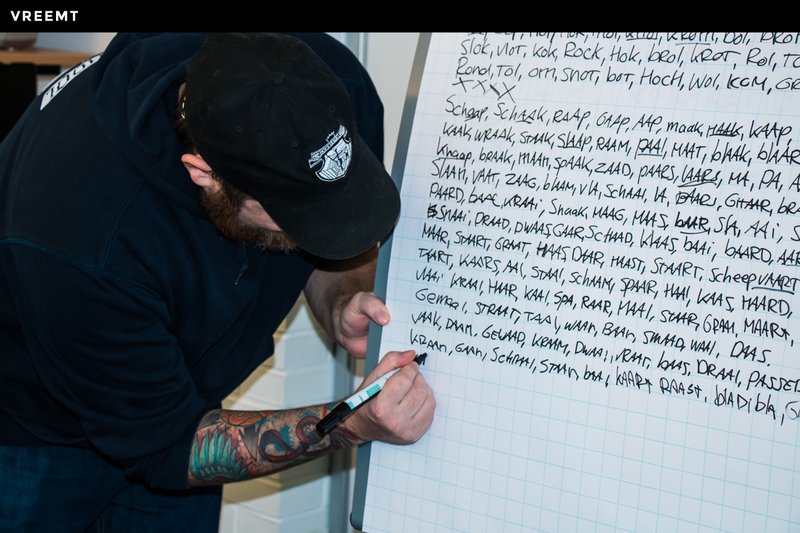 VREEMT
KROM, bol, brol
Slok, vlot, kok, Rock, Hok, brol, KROT, Rol, TO
Rond, Tol, om, snot, bot, Hoch, Wol, KOM, GR
XXXX
Schaap, Schaak, RAAP, GAAP, AAP, maak, HAAK, KAAP,
KAAK, WRAAK, STAAK, SLAAP, RAAM, PAAL, MAAT, blAAK, blAAR
Knaap, braak, maan, SPAAK, ZAAD, PAARS, LAARS, MA, PA, A
SLAAN, VAAT, ZAAG, blaam, VlA, SCHAAL, LA, BAARS, GITAAR, bra
PAARD, KRAAi, Shaak, MAAG, MAAS, bAAR, Sla, AAi, S
SNAAi, DRAAD, DWAAS, GAAR, SCHAAD, KlAAS, bAAi, bAARD, AAR
MAAR, STAART, GRAAT, HAAS, DAAR, HAAST, STAART, ScheepVAART
TAART, KAARS, AAL, STAAL, SCHAAM, SPAAR, HAAL, KAAS, HAARD,
KRAAL, HAAR, KAAL, SPA, RAAR, MAAL, STAAR, GRAAN, MAART,
Gemaal, STRAAT, TAAL, WAAN, BAAN, SMAAD, WAAL, DAAS.
VAAK, DAAM, GELAAD, KRAAM, DWAAL, VRAAT, bAAS, DRAAI, PASSEER
KRAAN, GAAN, SCHRAAL, STAAN, bAAL, KAART, RAAST, blADibla, G